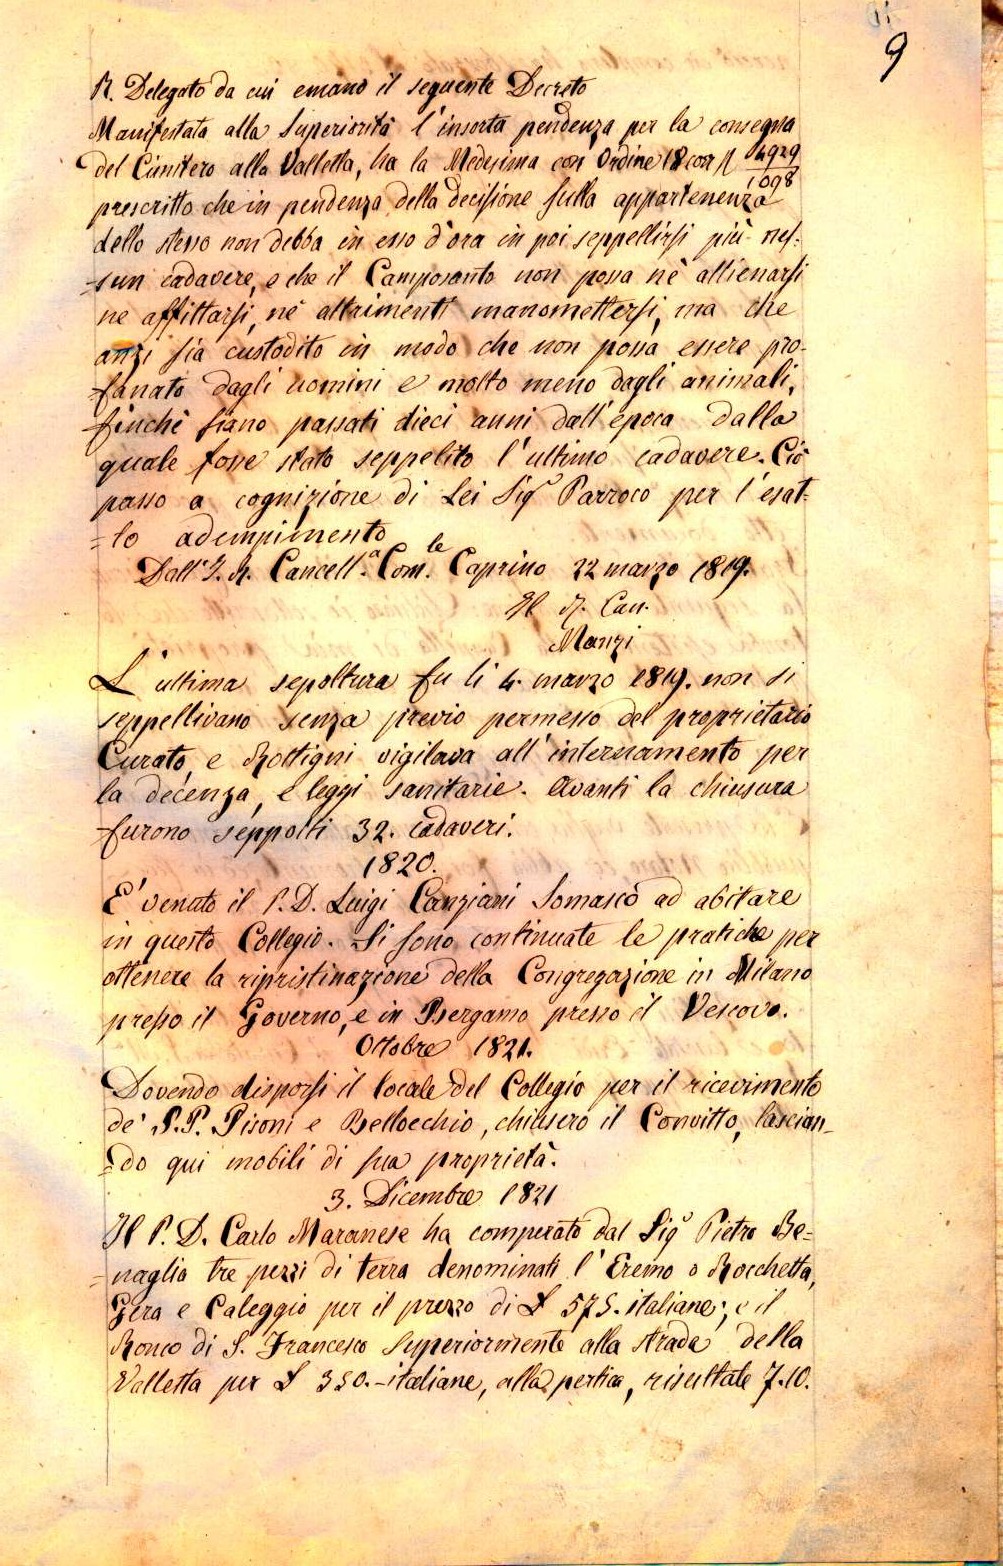 9
R. Delegato da cui emanò il seguente Decreto
Manifestata alla Superiorità l'insorta pendenza per la consegna
del Cimitero alla Valletta, ha la Medesima con Ordine 18 corr N 4929/1098
prescritto che in pendenza della decisione sulla appartenenza
dello stesso non debba in esso d'ora in poi seppellirsi più nes-
=sun cadavere, e che il Camposanto non possa nè allienarsi
ne affittarsi, nè altrimenti manomettersi, ma che
anzi sia custodito in modo che non possa essere pro-
fanato dagli uomini e molto meno dagli animali,
finchè siano passati dieci anni dall'epoca dalla
quale fosse stato seppelito l'ultimo cadavere. Ciò
passo a cognizione di Lei Sigr Parroco per l'esat-
=to adempimento
Dall'I. R. Cancell.a Com.le Caprino 22 marzo 1819.
Il R. Can.
Manzi
L'ultima sepoltura fu li 4. marzo 1819. non si
seppellivano senza previo permesso del proprietario
Curato, e Rottigni vigilava all'internamento per
la decenza, e leggi sanitarie. Avanti la chiusura
furono seppolti 32. cadaveri.
1820.
E' venuto il P. D. Luigi Canziani Somasco ad abitare
in questo Collegio. Si sono continuate le pratiche per
ottenere la ripristinazione della Congregazione in Milano
presso il Governo, e in Bergamo presso il Vescovo.
Ottobre 1821.
Dovendo disporsi il locale del Collegio per il ricevimento
de' P.P. Pisoni e Bellocchio, chiusero il Convitto, lascian-
=do qui mobili di sua proprietà.
3. Dicembre 1821
Il P. D. Carlo Maranese ha comperato dal Sigr Pietro Be=
=naglia tre pezzi di terra denominati l'Eremo o Rocchetta,
Gera e Caleggio per il prezzo di £ 575. italiane; e il
Ronco di S. Francesco superiormente alla strada della
Valletta per £ 350.-italiane, alla pertica, risultate 7.10.